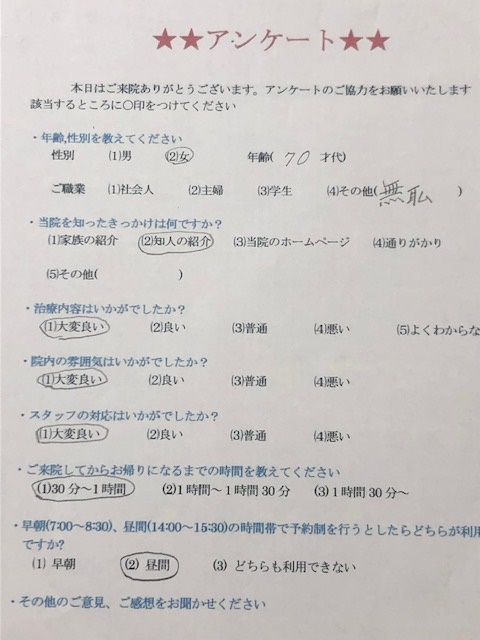 ★★アンケート★★
本日はご来院ありがとうございます。アンケートのご協力をお願いいたします
該当するところに〇印をつけてください
・年齢,性別を教えてください
性別 (1)男 (2)女 年齢( 70 才代)
ご職業 (1)社会人 (2)主婦 (3)学生 (4)その他(無職 )
・当院を知ったきっかけは何ですか?
(1)家族の紹介 (2)知人の紹介 (3)当院のホームページ (4)通りがかり
(5)その他( )
・治療内容はいかがでしたか?
(1)大変良い (2)良い (3)普通 (4)悪い (5)よくわからな
・院内の雰囲気はいかがでしたか?
(1)大変良い (2)良い (3)普通 (4)悪い
・スタッフの対応はいかがでしたか?
(1)大変良い (2)良い (3)普通 (4)悪い
・ご来院してからお帰りになるまでの時間を教えてください
(1)30分～1時間 (2)1時間～1時間30分 (3)1時間30分～
・早朝(7:00～8:30)、昼間(14:00～15:30)の時間帯で予約制を行うとしたらどちらが利用
ですか?
(1) 早朝 (2) 昼間 (3) どちらも利用できない
・その他のご意見、ご感想をお聞かせください